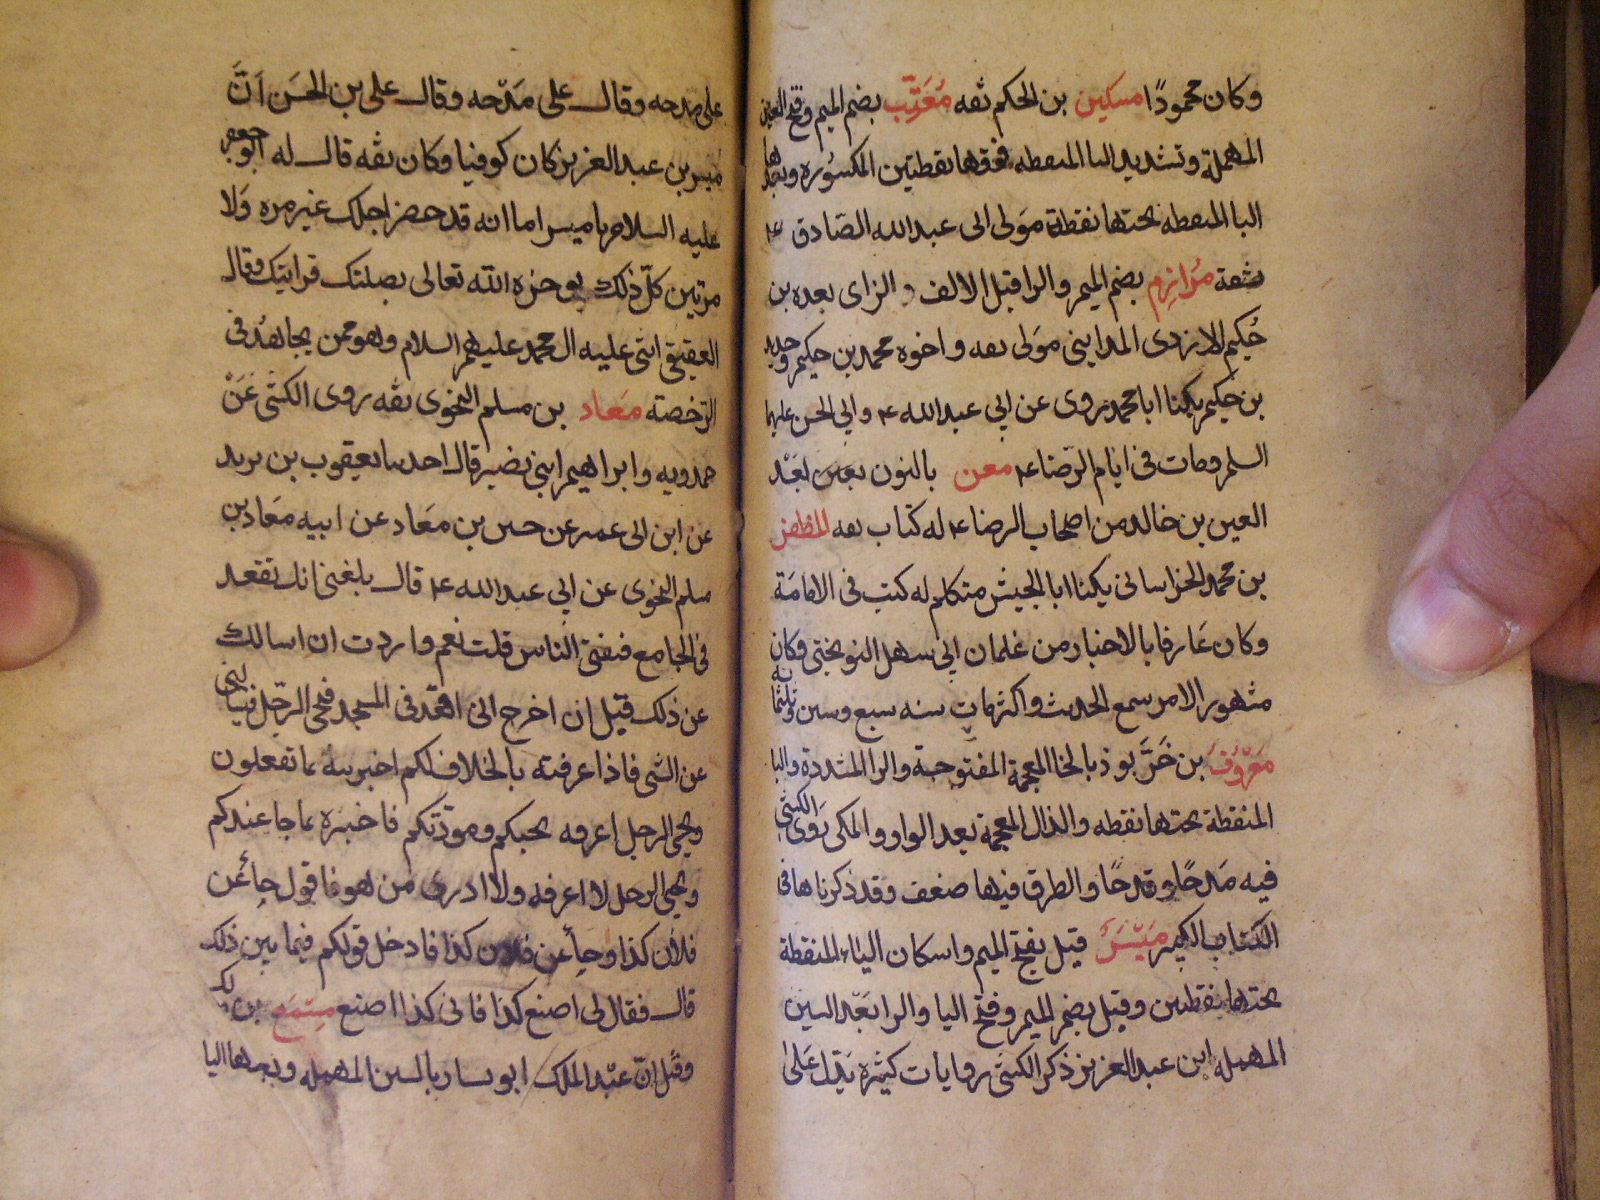 وكان محمودًا مسكين بن الحكم ثقه مُعَتِّب بضم الميم وفتح العين
المهملة وتشديد التا المنقطه فوقها نقطتين المكسوره وبعدها
البا المنقطه تحتها نقطة مَولى ابى عبد الله الصَادق ع
ثقة مُرَازِم بضم الميم والرا قبل الالف و الزاى بعده بن
حُكيم الازدى المداينى مَولى ثقه واخوه محمد بن حكيم وحديد
بن حكيم يكنا ابا محمد روى عن ابي عبد الله ع وابي الحسن عليهما
السلم ومات فى ايام الرّضا ع معن بالنون بعَد
العين بن خالد من اصحاب الرضا ع له كتاب ثقه المظفر
بن محمد الخراسانى يكنا ابا الجيش متكلم له كتب فى الامامَة
وكان عَارفا بالاخبار من غلمان ابي سهل النوبختى وكان
مشهور الامر سمع الحديث واكثر مات سنه سبع وستين وثلثمائه
مَعْرُوفُ بن خَرَّبوذ بالخا المعجمة المفتوحة والرا المشددة والبا
المنقطة تحتها نقطه والذال المعجمة بعد الواو المكى رَوَى الكشى
فيه مَدحًا وقدحًا والطرق فيها ضعف وقد ذكرناها فى
الكتاب الكبير مَيْسَرُ قيل بفتح الميم واسكان الياء المنقطة
تحتها نقطتين وقيل بضم الميم وفتح اليا والرا بَعد السين
المهمله ابن عبد العزيز ذكر الكشى روايات كثيرة يَدُل عَلى
على مدحه وقال على مَدْحه وقال على بن الحسَن اَنَّ
مُيسر بن عبد العزيز كان كوفيا وكان ثقه قال له ابو جعفر
عليه السلام يا ميسر اما انه قد حضر اجلك غير مره وَلا
مرتين كلّ ذلك يوخره الله تعالى بصلتك قرابتك وقال
العقيقى اثنى عليه ال محمد عليهم السلام وهو ممن يجاهد فى
الرّخصته مَعاد بن مسلم النحوى ثقه روى الكشى عَنْ
حمدويه وابراهيم ابنى نصير قالا حدثنا يعقوب بن يزيد
عن ابن ابى عمير عن حسين بن معَاد عن ابيه معَاد بن
مسلم النحوى عن ابي عبد الله ع قال بلغنى انك تقعد
فى الجامع فتفتى الناس قلت نعم واردت ان اسالك
عن ذلك قبل ان اخرج انى اقعد فى المسجد فيجى الرّجل فيسالنى
عن الشى فاذا عرفته بالخلاف لكم اخبرته بما تفعلون
ويجى الرجل اعرفه بحبكم ومودّتكم فاخبره بما جا عندكم
ويجى الرجل لا اعرفه ولا ادرى من هو فاقول جا عَن
فلان كذا وجا عن فلان كذا فادخل قولكم فيما بين ذلك
قال فقال لى اصنع كذا فانى كذا اصنع مِسْمَع بن
وقيل انّ عبْد الملك ابو سيار بالسين المهمله وبعدها اليا